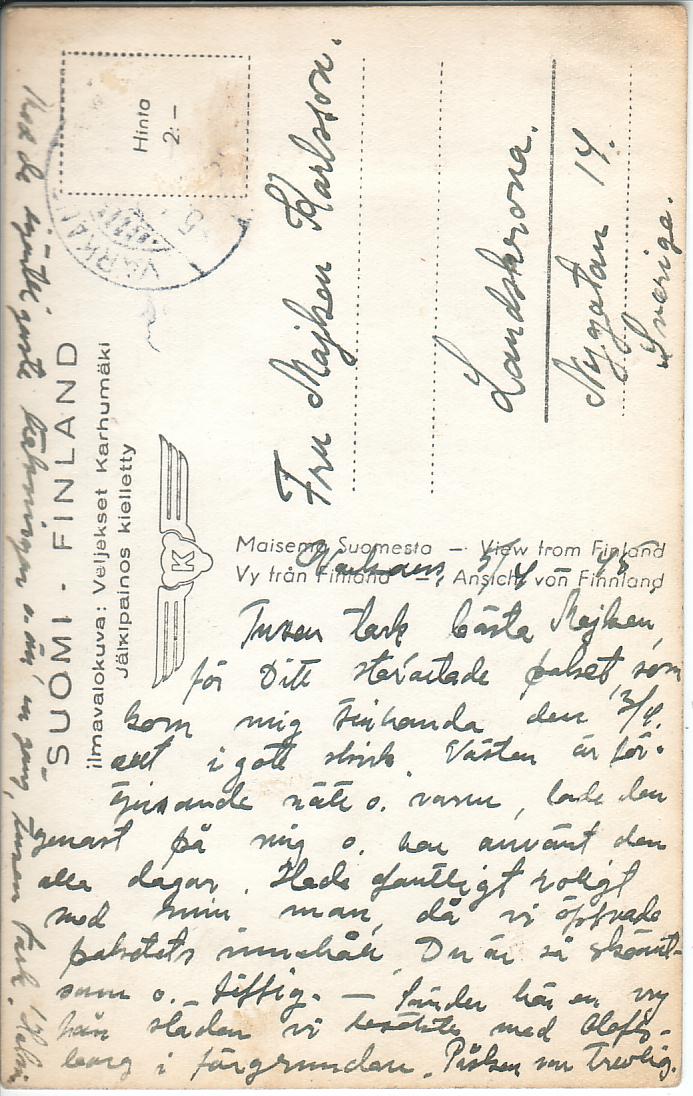 Hinta
2:-
VARKAUS
SUOMI - FINLAND
ilmavalokuva: Veljekset Karhumäki
Jälkipainos kielletty
K
Fru Majken Karlsson.
Landskrona.
Nygatan 14.
Sverige.
Maisema Suomesta — View from Finland
Vy från Finland — Ansicht von Finnland
Varkaus, 5/4
Tusen tack bästa Majken,
för Ditt paket, som
kom mig tillhanda den 3/4.
allt i gott skick. Västen är för-
tjusande nätt o. varm, lade den
genast på mig o. har använt den
alla dagar. Hade gantligt roligt
med min man, då vi öppnade
paketets innehåll. Du är så
som o. Sänder här en vy
från staden vi besökte med Olofs-
borg i förgrunden. Påsken var trevlig.
o. än en gång, tusen tack.